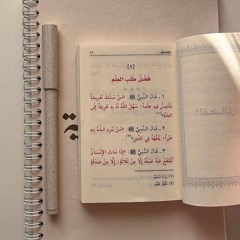 (١)
فَضْلُ طَلَبِ العِلْمِ
١ ـ قَالَ النَّبِيُّ ﷺ: «مَنْ سَلَكَ طَرِيقاً
يَلْتَمِسُ فِيهِ عِلْماً، سَهَّلَ اللَّهُ لَهُ بِهِ طَرِيقاً إِلَى
الجَنَّةِ»
٢ ـ قَالَ النَّبِيُّ ﷺ: «مَنْ يُرِدِ اللَّهُ بِهِ
خَيْراً، يُفَقِّهْهُ فِي الدِّينِ»
٣ ـ قَالَ النَّبِيُّ ﷺ: «إِذَا مَاتَ الإِنْسَانُ
انْقَطَعَ عَنْهُ عَمَلُهُ إِلَّا مِنْ ثَلَاثَةٍ: إِلَّا مِنْ صَدَقَةٍ